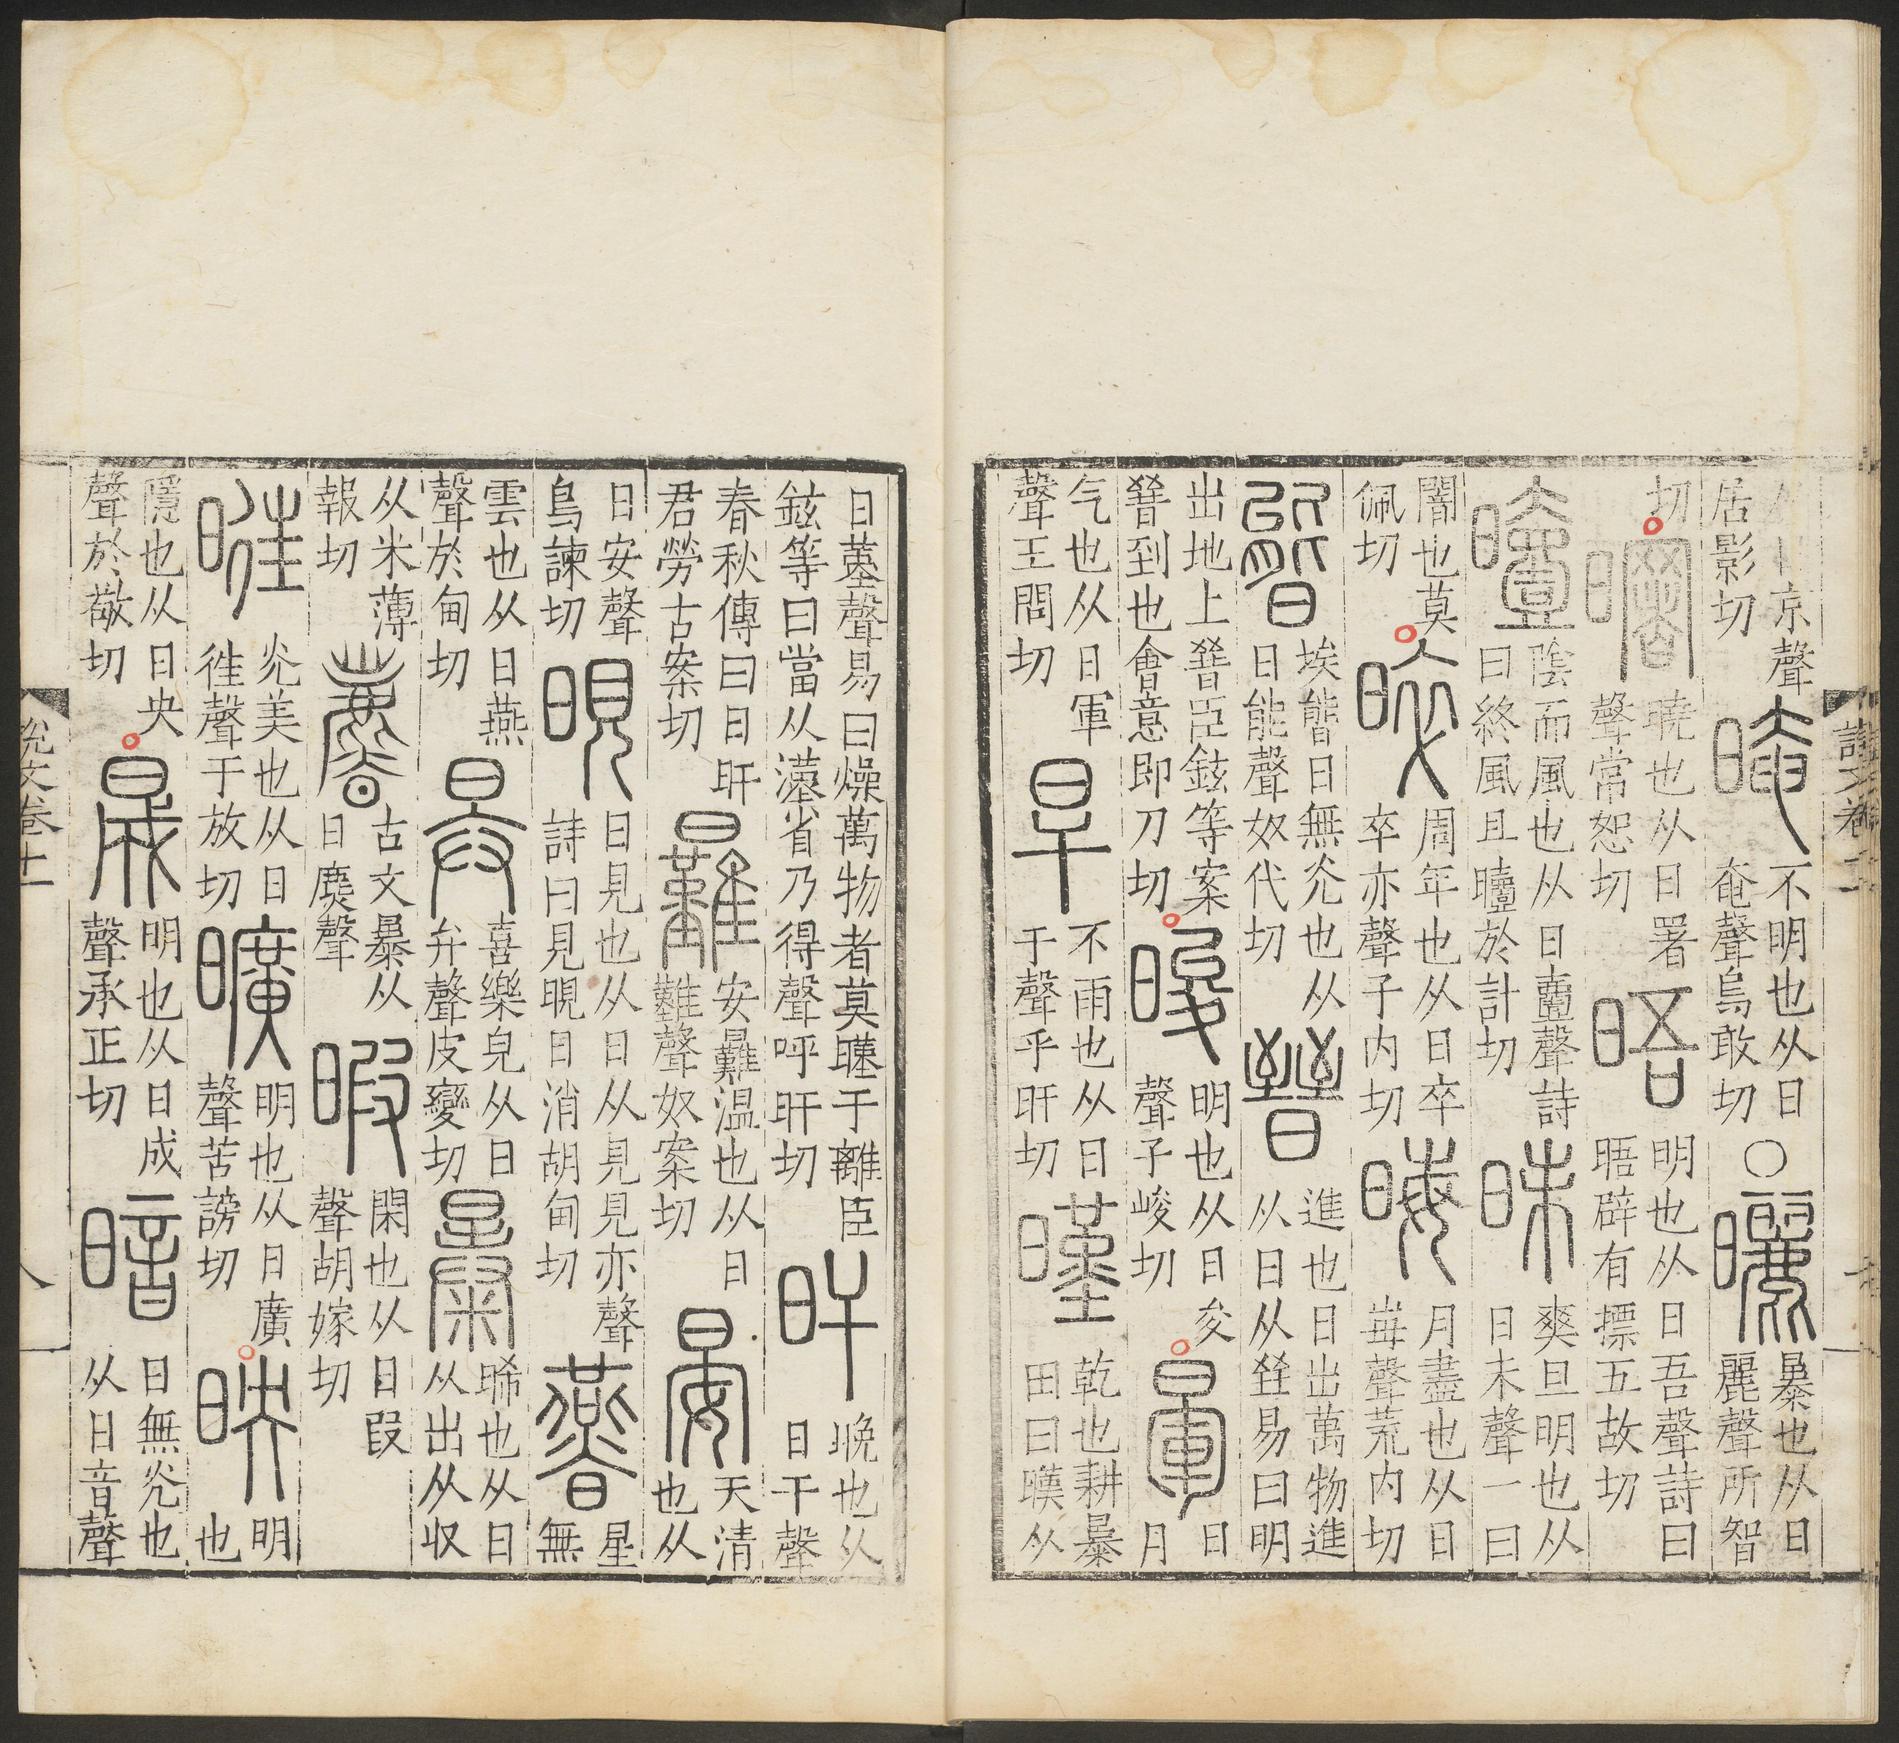 京聲居影切晻不明也从日奄聲烏敢切〇曬暴也从日麗聲所智
切曙曉也从日署聲常恕切晤明也从日吾聲詩曰晤辟有摽五故切
曀陰而風也从日壹聲詩曰終風且曀於計切昧爽旦明也从日未聲一曰
闇也莫佩切晬周年也从日卒卒亦聲子内切晦月盡也从日每聲荒内切
㬅埃㬅日無光也从日能聲奴代切晉進也日出萬物進从日从臸易曰明
出地上晉臣鉉等案晉到也會意即刀切晙明也从日夋聲子峻切暈日月
气也从日軍聲王問切旱不雨也从日干聲乎旰切暵乾也耕暴田曰暵从
日𦰩聲易曰燥萬物者莫暵于離臣鉉等曰當从漢省乃得聲呼旰切旰晚也从日干聲
春秋傳曰日旰君勞古案切㬮安㬮温也从日難聲奴案切晏天清也从
日安聲烏諫切晛日見也从日从見見亦聲詩曰見晛曰消胡甸切㬫星無
雲也从日燕聲於甸切昪喜樂皃从日弁聲皮變切暴晞也从日从出从収
从米薄報切古文暴从日麃聲暇閑也从日叚聲胡嫁切
暀光美也从日往聲于放切曠明也从日廣聲苦謗切映明也
隱也从日央聲於敬切晟明也从日成聲承正切暗日無光也从日音聲
說文卷十一
八